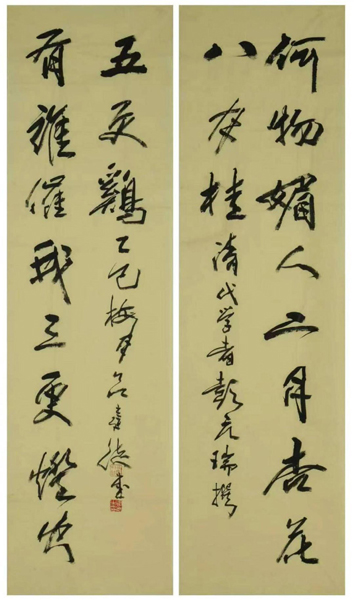 何物媚人二月杏花
八月桂 清代学者彭元瑞撰
有誰催我三更燈火
五更鷄 乙巳梅月 書